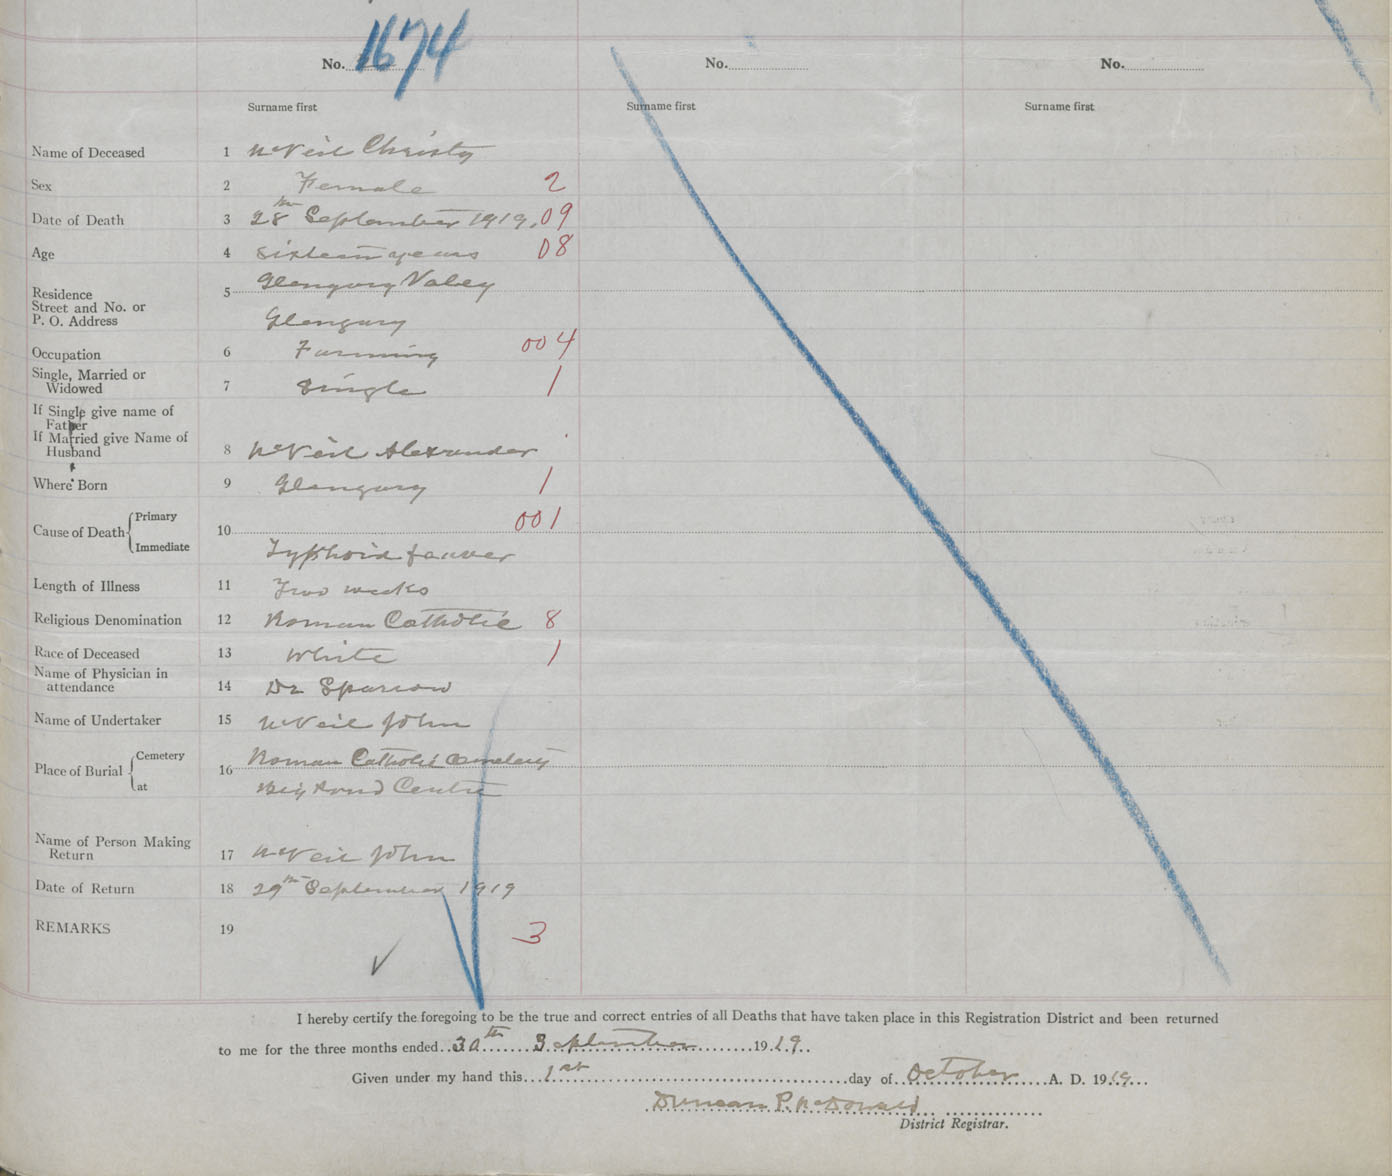 No. 1674 No. No.
Surname first Surname first Surname first
Name of Deceased 1 McNeil Christy
Sex 2 Female 2
Date of Death 3 28th September 1919. 09
Age 4 Sixteen years 08
Residence 5 Glengary Valey
Street and No. or
P. O. Address Glengary
Occupation 6 Farming 004
Single, Married or
Widowed 7 Single 1
If Single give name of
Father
If Married give Name of
Husband 8 McNeil Alexander
Where Born 9 Glengary 1
Cause of Death Primary 10 001
Immediate Typhoid feauver
Length of Illness 11 Two weeks
Religious Denomination 12 Roman Catholic 8
Race of Deceased 13 White 1
Name of Physician in
attendance 14 Dr Sparrow
Name of Undertaker 15 McNeil John
Place of Burial Cemetery 16 Roman Catholic Cemetery
at Big Pond Centre
Name of Person Making
Return 17 McNeil John
Date of Return 18 29th September 1919
REMARKS 19 3
I hereby certify the foregoing to be the true and correct entries of all Deaths that have taken place in this Registration District and been returned
to me for the three months ended 30th September 1919.
Given under my hand this 1st day of October A. D. 1919
Duncan P. McDonald
District Registrar.